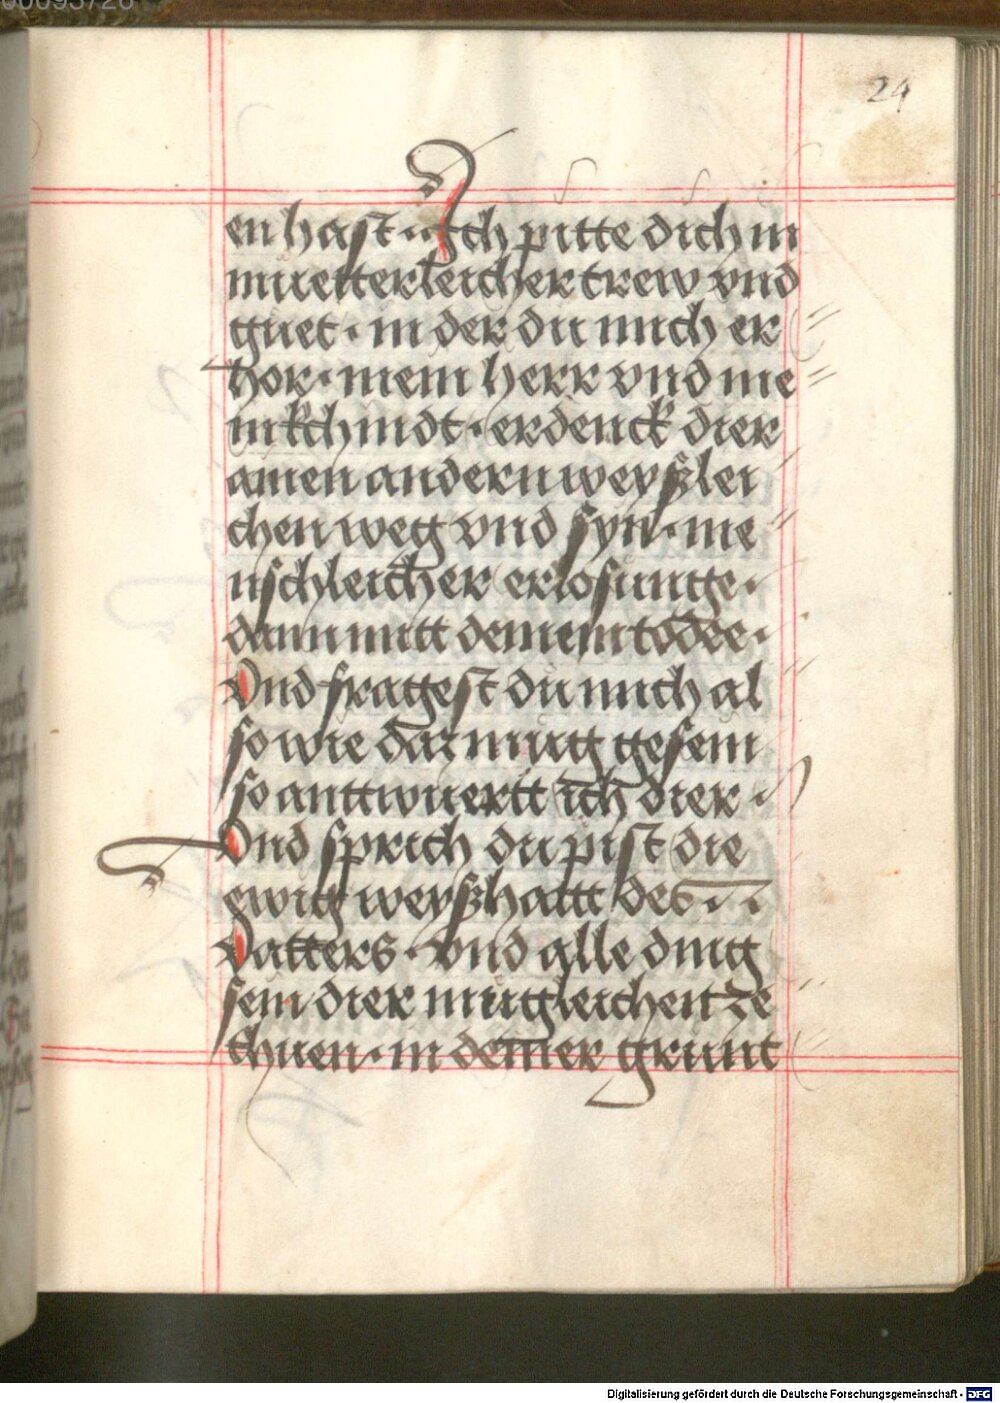 00095728
24
en hast · Ich pitte dich in
muetterleicher trew vnd
guet · in der du mich er
hor · mein herr vnd me
in kchindt · erdenck dier
ainen andern weyßlei
chen weg vnd syn · me
nschleicher erlosunge ·
dann mitt deinem todee ·
Vnd fragest du mich al
so wie daz mug gesein
so anttwuertt ich dier ·
Vnd sprich du pist die
ewig weyßhaitt des
vatters · vnd alle ding
sein dier mugleichen ze
thuen · in deiner grunt
Digitalisierung gefördert durch die Deutsche Forschungsgemeinschaft - DFG